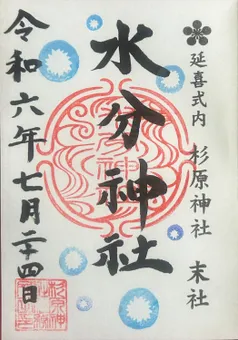 延喜式内 杉原神社 末社
水分神社
令和六年七月二十四日